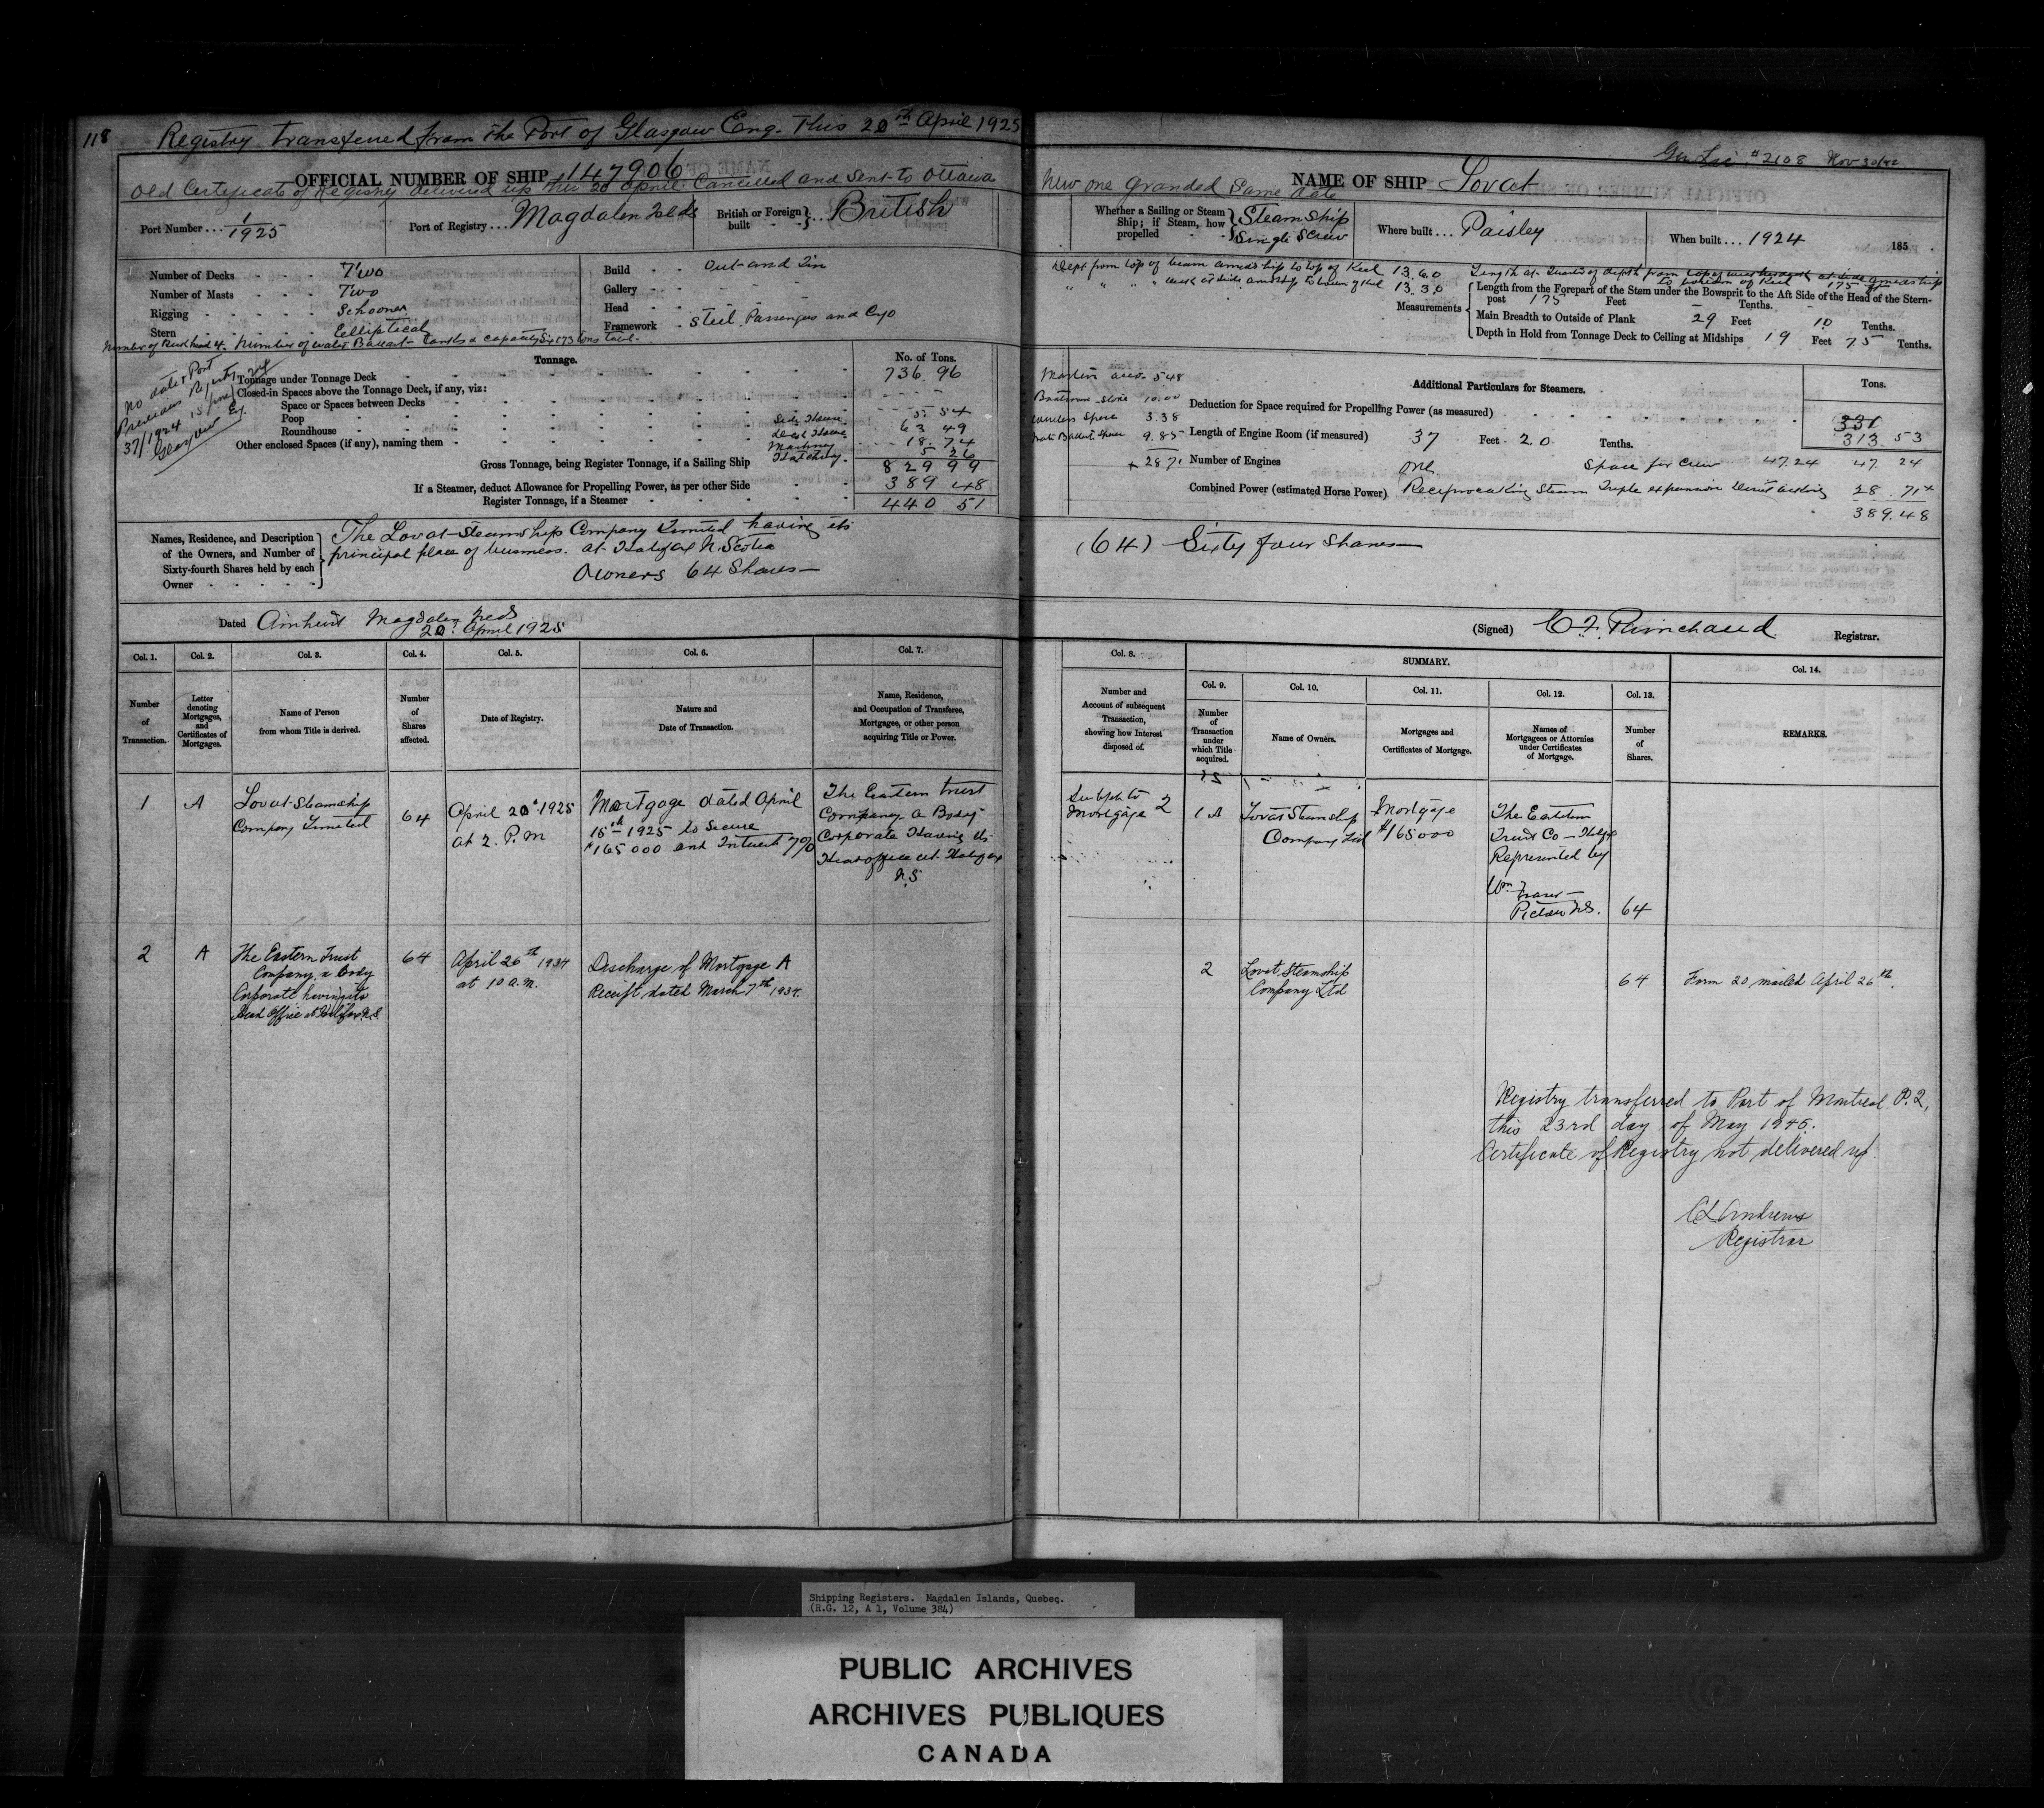 118
Registry transferred from the Port of Glasgow Eng. This 20th April 1925
OFFICIAL NUMBER OF SHIP 147906
Old Certificate of Registry delivered up this 20 April. Cancelled and Sent to Ottawa
Port Number ... 1/1925
Port of Registry ... Magdalen Islds
British or Foreign built ... British
Number of Decks Two
Number of Masts Two
Rigging Schooner
Stern Elliptical
Build Out and In
Gallery
Head
Framework Steel. Passengers and Cgo
Number of Bulkhead 4. Number of water Ballast Tanks & capacity Six 173 tons total.
No date & Port
Previous Registry
37/1924
Glasgow
Tonnage.
No. of Tons.
Tonnage under Tonnage Deck 736.96
Closed-in Spaces above the Tonnage Deck, if any, viz:
Space or Spaces between Decks
Poop 5.54
Roundhouse 63 49
Other enclosed Spaces (if any), naming them 18.74
Hatchway 5 26
Gross Tonnage, being Register Tonnage, if a Sailing Ship 829 99
If a Steamer, deduct Allowance for Propelling Power, as per other Side 389 48
Register Tonnage, if a Steamer 440 51
Names, Residence, and Description
of the Owners, and Number of
Sixty-fourth Shares held by each
Owner
The Lovat Steamship Company Limited having its
principal place of business at Halifax N. Scotia
Owners 64 Shares
Dated Amherst Magdalen Islds
20th April 1925
Col. 1. Col. 2. Col. 3. Col. 4. Col. 5. Col. 6. Col. 7.
Number of Transaction.
Letter denoting Mortgages, and Certificates of Mortgages.
Name of Person from whom Title is derived.
Number of Shares affected.
Date of Registry.
Nature and Date of Transaction.
Name, Residence, and Occupation of Transferee, Mortgagee, or other person acquiring Title or Power.
1 A
Lovat Steamship
Company Limited
64
April 20th 1925
at 2. P.M
Mortgage dated April
15th 1925 to Secure
$165 000 and Interest 7%
The Eastern Trust
Company a Body
Corporate Having its
Head office at Halifax
N.S
2 A
The Eastern Trust
Company, a body
Corporate having its
Head Office at Halifax N.S.
64
April 26th 1934
at 10 a.m.
Discharge of Mortgage A
Receipt dated March 7th 1934.
2108 Nov 30/42
NAME OF SHIP Lovat
New one granded Same date
Whether a Sailing or Steam Ship; if Steam, how propelled
Steam Ship
Single Screw
Where built ... Paisley
When built ... 1924
185
Dept from top of beam amidship to top of Keel 13.60
" " " deck at side amidship to bottom of Keel 13.30
Measurements
Length from the Forepart of the Stem under the Bowsprit to the Aft Side of the Head of the Stern-
post 175 Feet - Tenths.
Main Breadth to Outside of Plank 29 Feet 10 Tenths.
Depth in Hold from Tonnage Deck to Ceiling at Midships 19 Feet 75 Tenths.
Masters acco. 5 48
Boatswain Store 10.00
Wireless Space 3.38
Water Ballast Space 9.85
+ 28 71
Additional Particulars for Steamers.
Tons.
Deduction for Space required for Propelling Power (as measured) 331
313 53
Length of Engine Room (if measured) 37 Feet 20 Tenths.
Number of Engines One Space for Crew 47.24 47. 24
Combined Power (estimated Horse Power) Reciprocating Steam Triple expansion Direct acting 28. 71+
389.48
(64) Sixty four Shares
(Signed) Registrar.
Col. 8.
SUMMARY.
Col. 9. Col. 10. Col. 11. Col. 12. Col. 13. Col. 14.
Number and Account of subsequent Transaction, showing how Interest disposed of.
Number of Transaction under which Title acquired.
Name of Owners.
Mortgages and Certificates of Mortgage.
Names of Mortgagees or Attornies under Certificates of Mortgage.
Number of Shares.
REMARKS.
Subject to
Mortgage 2
1 A
Lovat Steamship
Company Ltd
Mortgage
$165000
The Eastern
Trust Co - Halifx
Represented by
Wm Fraser
Pictou N.S.
64
2
Lovat Steamship
Company Ltd
64
Form 20 mailed April 26th.
Registry transferred to Port of Montreal P.Q.
this 23rd day of May 1945.
Certificate of Registry not delivered up.
Andrews
Registrar
Shipping Registers. Magdalen Islands, Quebec.
(R.G. 12, A 1, Volume 384)
PUBLIC ARCHIVES
ARCHIVES PUBLIQUES
CANADA